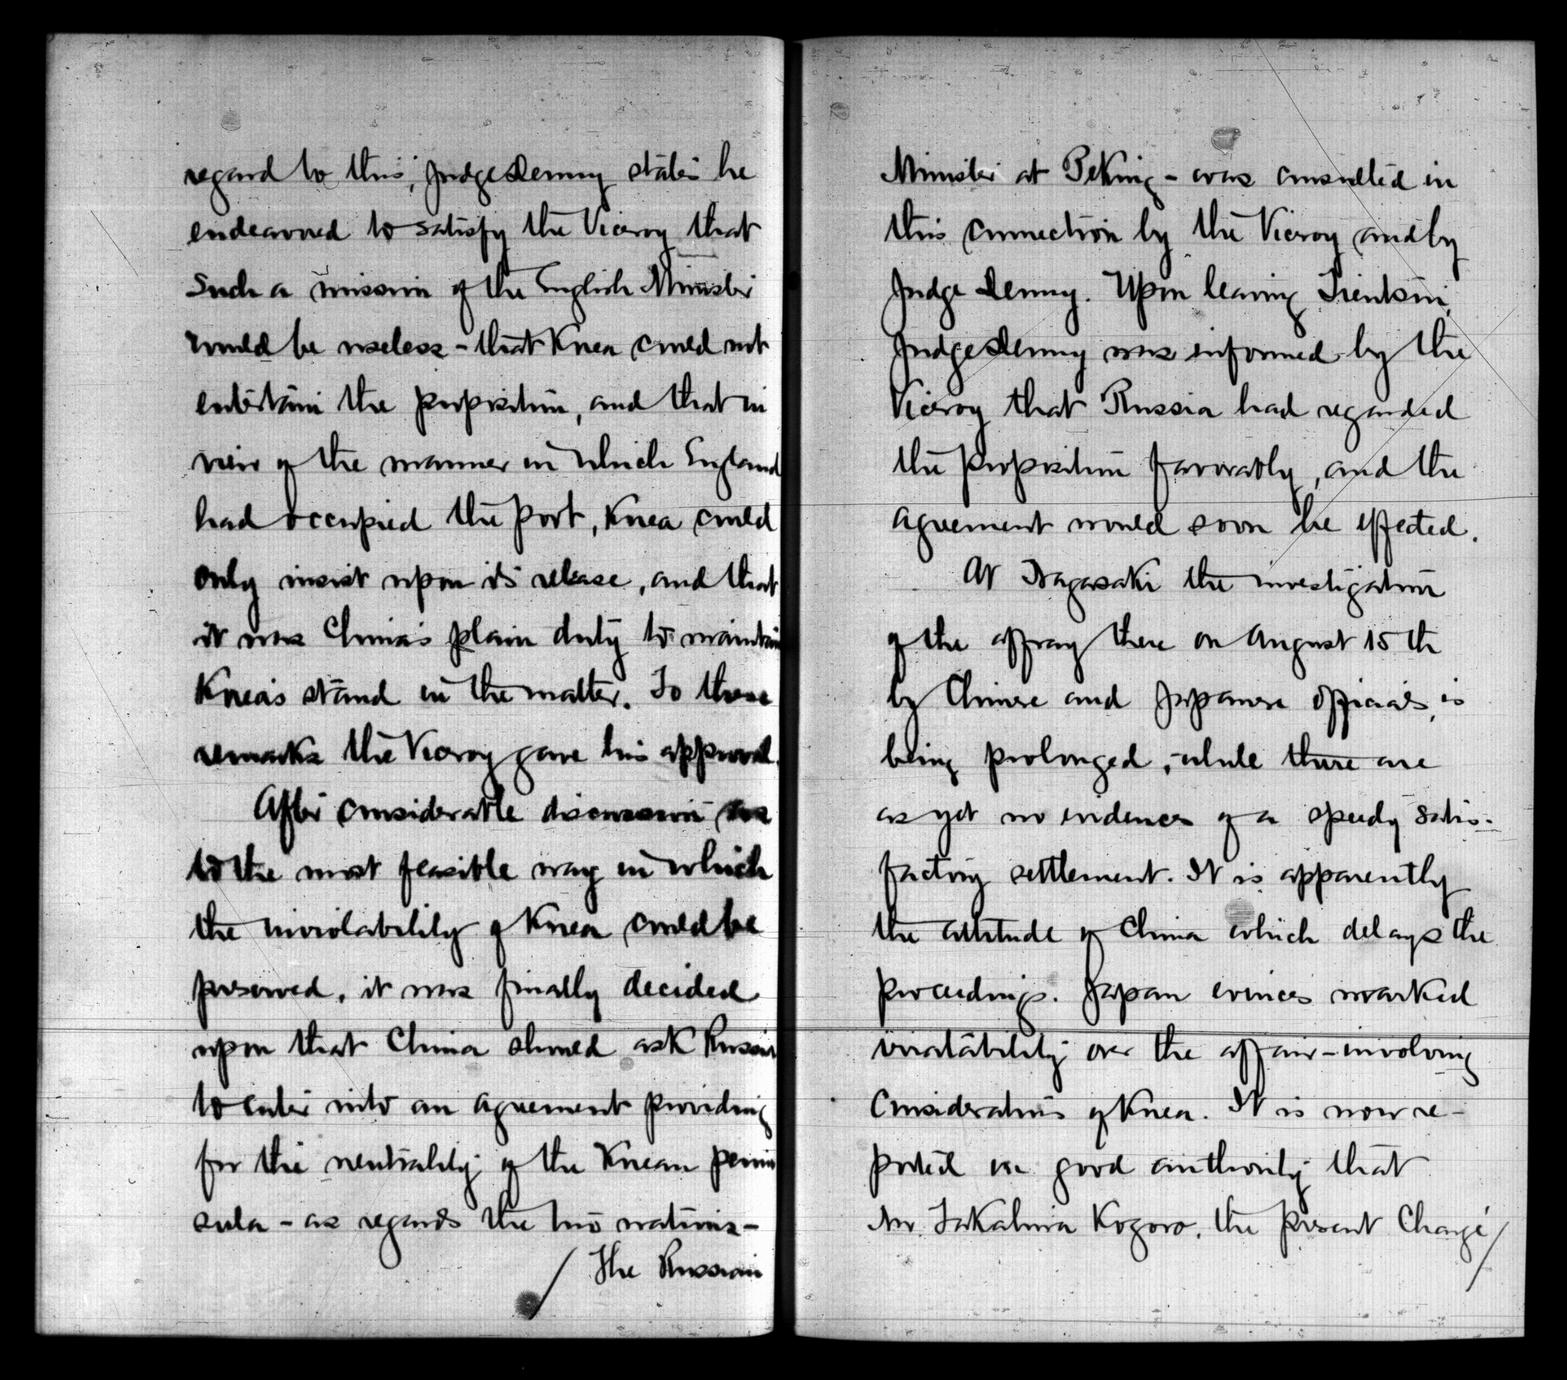 regard to this, Judge Denny states he
endeavored to satisfy the Viceroy that
such a mission of the English Minister
would be useless - that Korea could not
entertain the proposition, and that in
view of the manner in which England
had occupied the port, Korea could
only insist upon its release, and that
it was China's plain duty to maintain
Korea's stand in the matter. To these
remarks the Viceroy gave his approval.
After considerable discussion as
to the most feasible way in which
the inviolability of Korea could be
preserved, it was finally decided
upon that China should ask Russia
to enter into an agreement providing
for the neutrality of the Korean penin
sula - as regards the two nations -
The Russian
Minister at Peking - was consulted in
this connection by the Viceroy and by
Judge Denny. Upon leaving Tientsin,
Judge Denny was informed by the
Viceroy that Russia had regarded
the proposition favorably, and the
agreement would soon be effected.
At Nagasaki the investigation
of the affray there on August 15th
by Chinese and Japanese officials, is
being prolonged, - while there are
as yet no evidences of a speedy satis-
factory settlement. It is apparently
the attitude of China which delays the
proceedings. Japan evinces marked
irritability over the affair - involving
considerations of Korea. It is now re-
ported on good authority that
Mr. Takahira Kogoro, the present Chargé